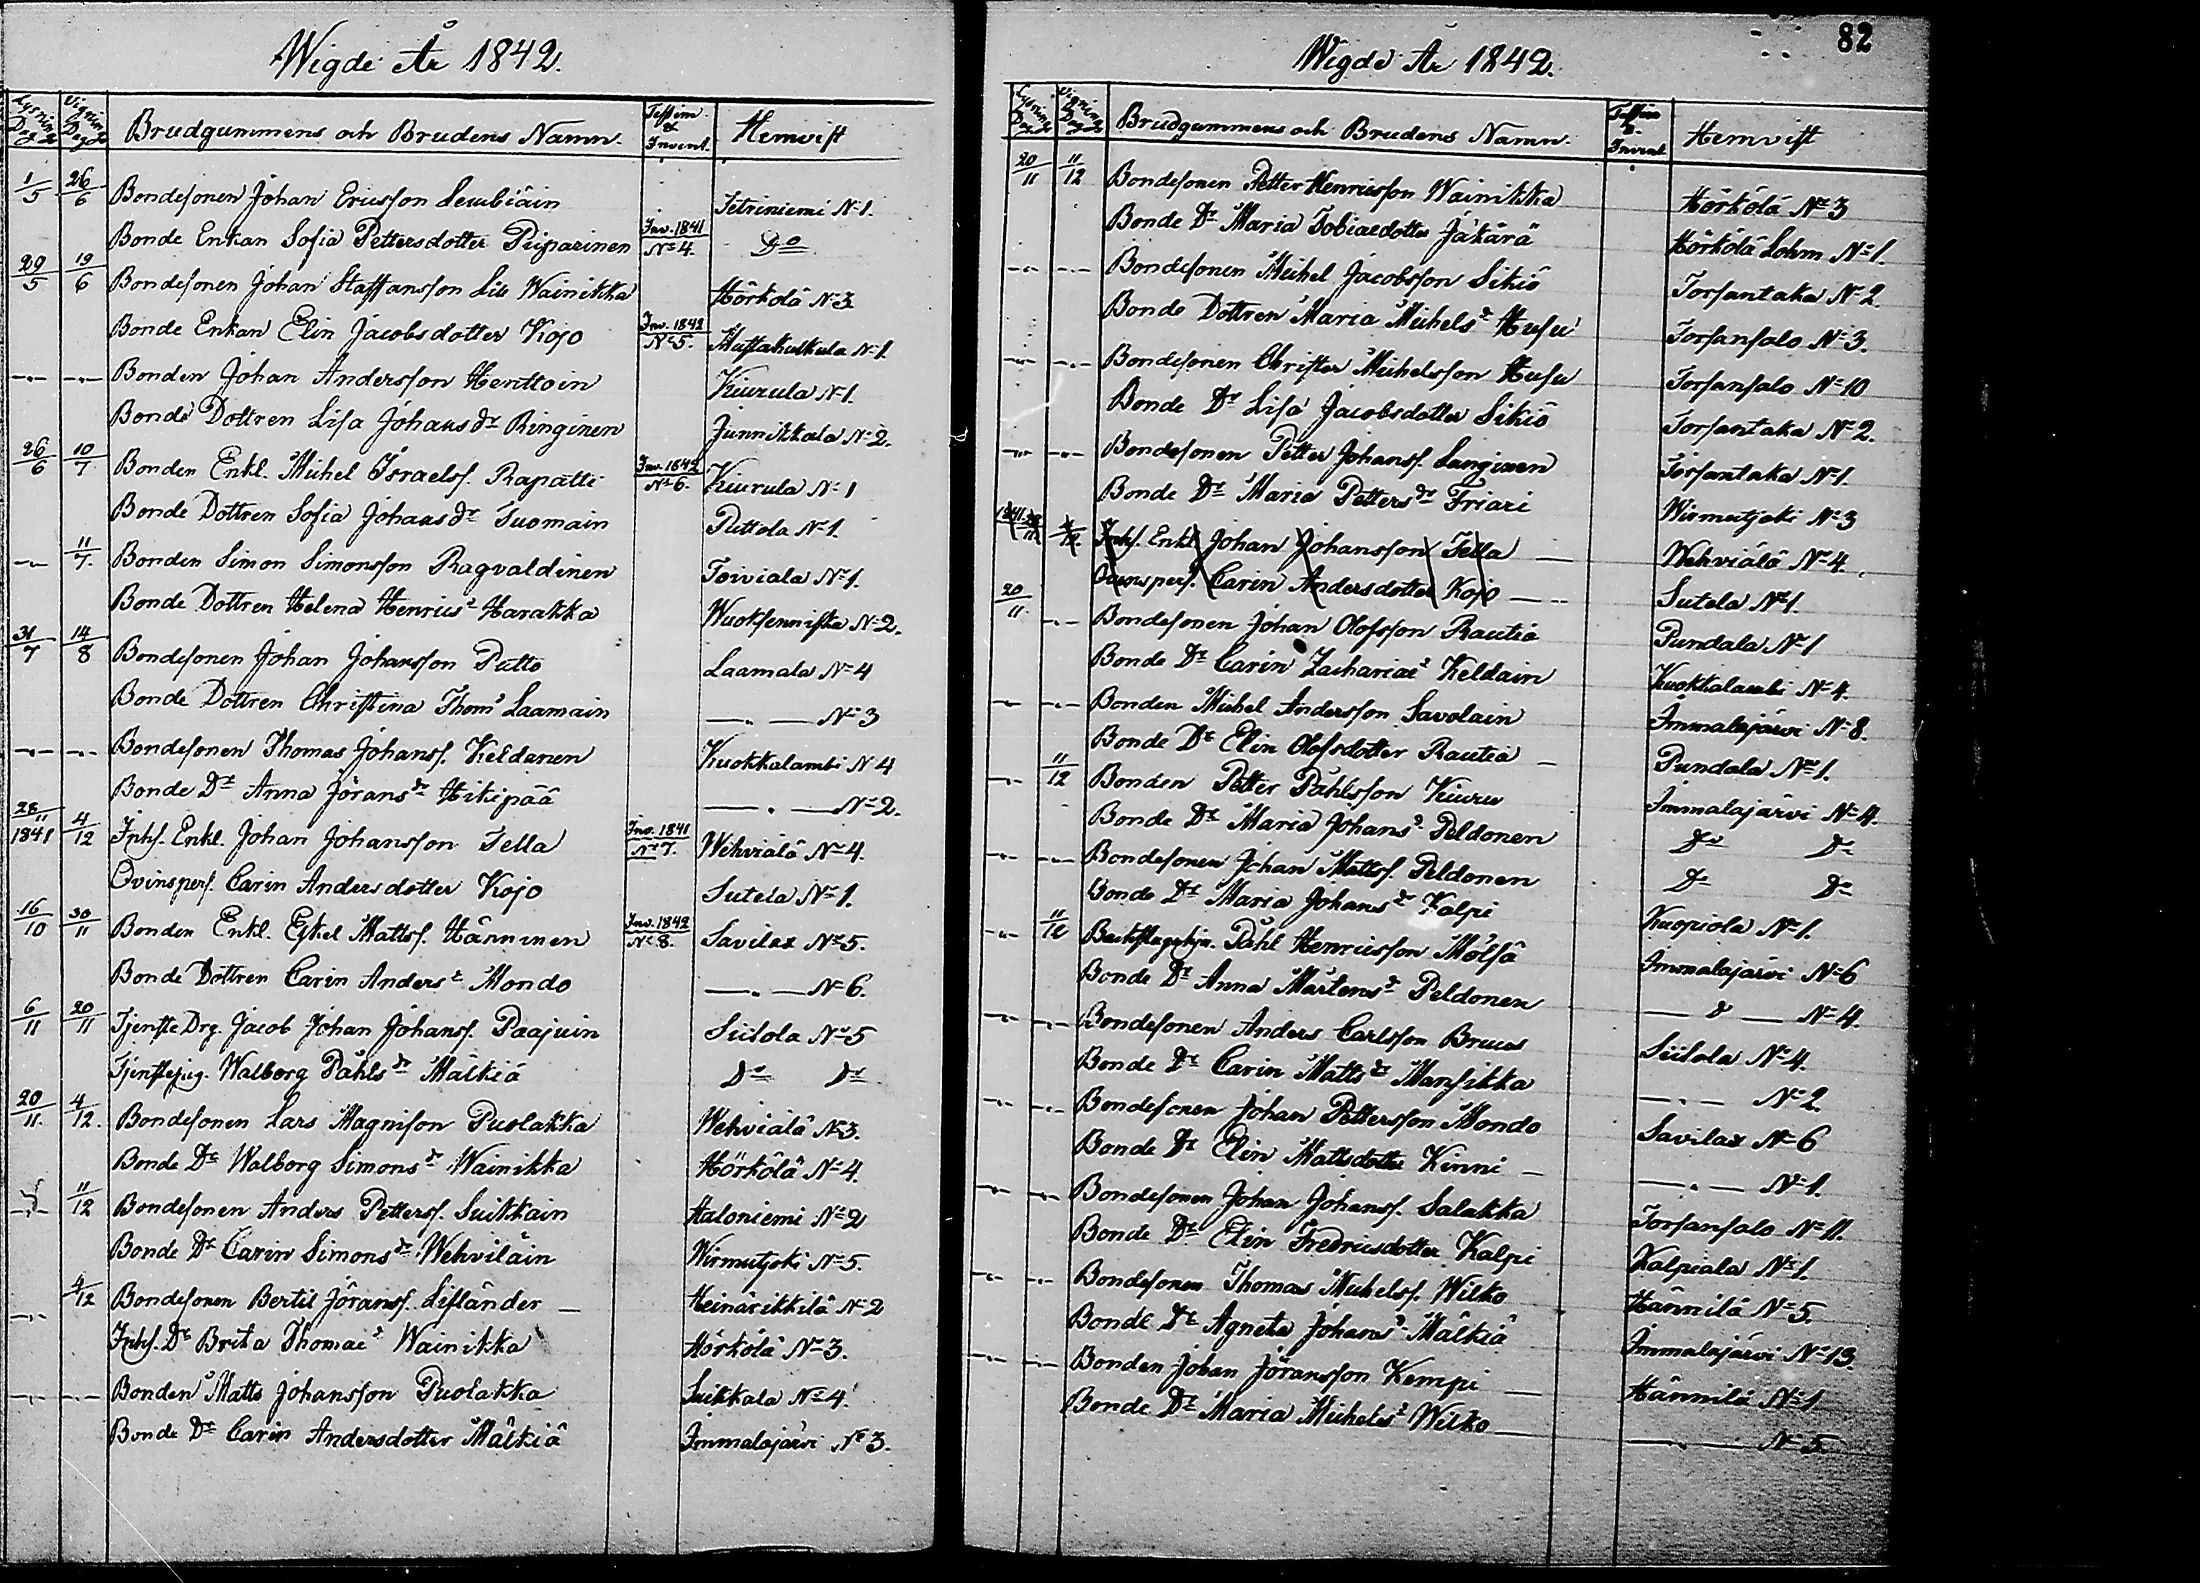 Wigde År 1842.
Lysnings Dag Vignings Dag Brudgummens och Brudens Namn. Testim & Invent. Hemvist
1/5 26/6 Bondesonen Johan Ericsson Lembiäin Jetriniemi No 1.
Bonde Enkan Sofia Pettersdotter Piiparinen Inv. 1841 No 4. Do
29/5 19/6 Bondesonen Johan Staffansson Lill Wainikka Hörkölä No 3
Bonde Enkan Elin Jacobsdotter Kojo Inv. 1842 No 5. Mustakulkula No 1
—„— —„— Bonden Johan Andersson Henttoin Kiurula No 1.
Bonde Dottren Lisa Johans dr Ringinen Junnikkala No 2.
26/6 10/7 Bonden Enkl. Michel Israelss. Rapatti Inv. 1842 No 6. Kiurula No 1
Bonde Dottren Sofia Johans dr Tuomain Puttola No 1.
—„— 11/7. Bonden Simon Simonsson Ragvaldinen Toiviala No 1.
Bonde Dottren Helena Henrics dr Harakka Wuoksenniska No 2.
31/7 14/8 Bondesonen Johan Johansson Patto Laamala No 4
Bonde Dottren Christina Thoms Laamain —„— No 3
—„— —„— Bondesonen Thomas Johanss. Keldanen Kuokkalambi No 4
Bonde Dr Anna Jörans dr Hikipää —„— No 2.
28/11 1841 4/12 Inhs. Enkl. Johan Johansson Tella Inv. 1841 No 7. Wehviälä No 4.
Qvinspers. Carin Andersdotter Kojo Sutela No 1.
16/10 30/11 Bonden Enkl. Eskel Mattss. Hänninen Inv. 1842 No 8. Savilax No 5.
Bonde Dottren Carin Anders dr Mondo —„— No 6.
6/11 20/11 Tjenste Drg. Jacob Johan Johanss. Paajuin Siitola No 5
Tjenstepig. Walborg Påhls dr Mälkiä Do Do
20/11. 4/12. Bondesonen Lars Magnison Puolakka Wehviälä No 3.
Bonde Dr Walborg Simons dr Wainikka Hörkölä No 4.
—„— 11/12 Bondesonen Anders Petterss. Suikkain Haloniemi No 2
Bonde Dr Carin Simons dr Wehviläin Wirmutjoki No 5.
—„— 4/12 Bondesonen Bertil Jöranss. Lifländer — Heinärikkilä No 2
Inhs. Dr Brita Thomae dr Wainikka Hörkölä No 3.
—„— —„— Bonden Matts Johansson Puolakka Suikkala No 4
Bonde Dr Carin Andersdotter Mälkiä Immalajärvi No 3.
82
Wigde År 1842.
Lysnings Dag Vignings Dag Brudgummens och Brudens Namn. Testim & Invent Hemvist
20/11 11/12 Bondesonen Petter Henricsson Wainikka Hörkölä No 3
Bonde Dr Maria Tobiaedotter Jäkärä Hörkölä Lohm No 1.
—„— —„— Bondesonen Michel Jacobsson Sikiö Torsantaka No 2.
Bonde Dottren Maria Michels dr Husu Torsansalo No 3.
—„— —„— Bondesonen Christer Michelsson Husu Torsansalo No 10
Bonde Dr Lisa Jacobsdotter Sikiö Torsantaka No 2.
—„— —„— Bondesonen Petter Johanss. Langinen Torsantaka No 1.
Bonde Dr Maria Petters dr Friari Wirmutjoki No 3
1841 28/11 4/12. Inhs. Enkl. Johan Johansson Tella — Wehviälä No 4.
Qvinspers. Carin Andersdotter Kojo — Sutela No 1.
20/11. —„— Bondesonen Johan Olofsson Rautia Pundala No 1
Bonde Dr Carin Zachariae dr Keldain Kuokkalambi No 4.
—„— —„— Bonden Michel Andersson Savolain Immalajärvi No 8.
Bonde Dr Elin Olofsdotter Rautia — Pundala No 1.
—„— 11/12 Bonden Petter Påhlsson Kiuru Immalajärvi No 4.
Bonde Dr Maria Johans dr Peldonen Do Do
—„— —„— Bondesonen Johan Mattss. Peldonen Do Do
Bonde Dr Maria Johans dr Kalpi Kuopiola No 1.
—„— 11/12 Påhl Henricsson Mölsä Immalajärvi No 6
Bonde Dr Anna Mårtens dr Peldonen — d — No 4.
—„— —„— Bondesonen Anders Carlsson Bruus Siitola No 4.
Bonde Dr Carin Matts dr Mansikka —„— No 2.
—„— —„— Bondesonen Johan Pettersson Mondo Savilax No 6
Bonde Dr Elin Mattsdotter Kinni — —„— No 1.
—„— —„— Bondesonen Johan Johanss. Salakka Torsansalo No 11.
Bonde Dr Elin Fredricsdotter Kalpi Kalpiala No 1.
—„— —„— Bondesonen Thomas Michelss. Wilko Hännilä No 5.
Bonde Dr Agneta Johans dr Mälkiä Immalajärvi No 13.
—„— —„— Bonden Johan Jöransson Kempi — Hännilä No 1
Bonde Dr Maria Michels dr Wilko — —„— No 5